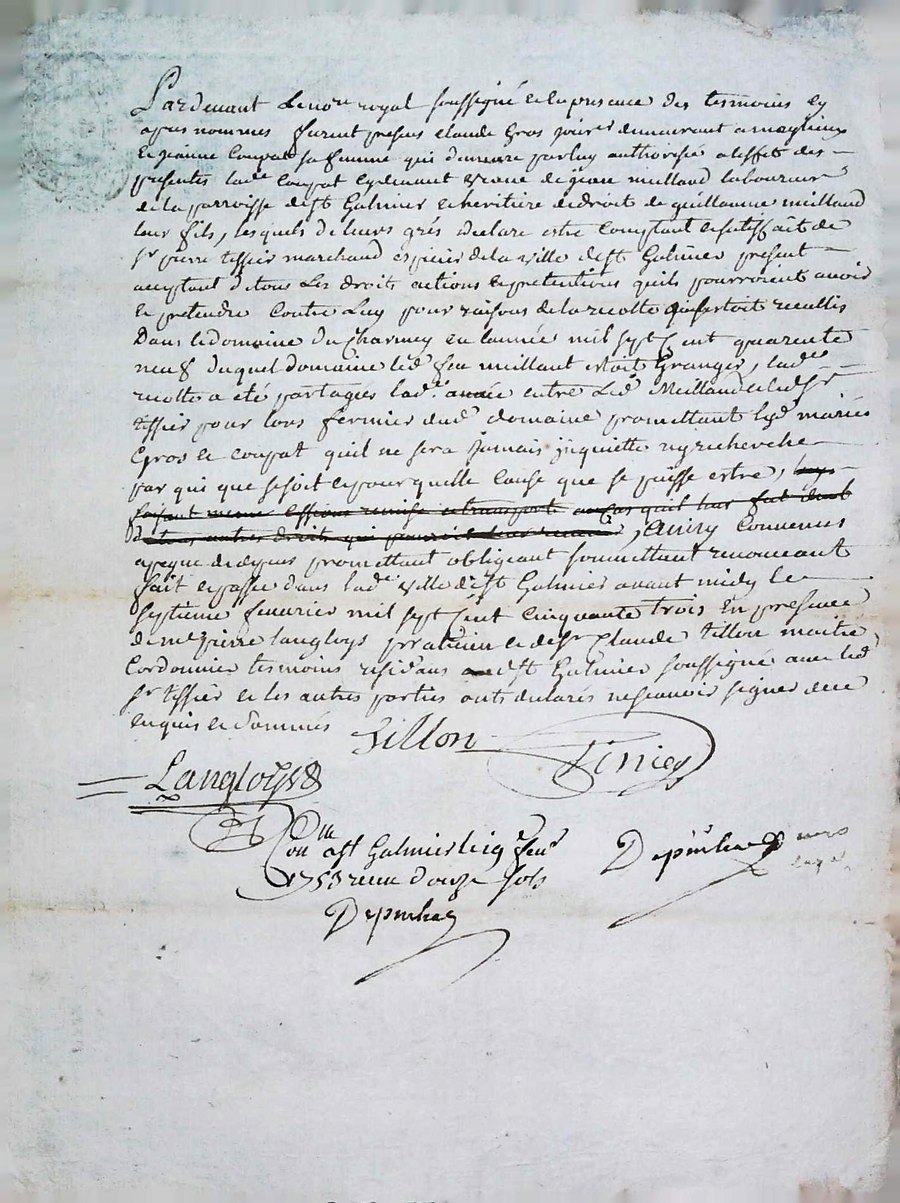 Pardevant Le no.re royal soussigné et en presence des tesmoins cy
apres nommes furent presens Claude Gros demeurant a
et jeanne Coupat sa femme qui demeure par luy authorisée a leffet des
presentes lad.e Coupat cydevant veuve de jean meilland laboureur
de la parroisse de st Galmier et heritiere de droit de guillaume meilland
leur fils, lesquels de leurs grés declare estre Comptant et satisffait de
sr pierre tissier marchand espicier de la ville de st Galmier present
acceptant de tous Les droits actions et pretentions quils pourroient avoir
et pretendre Contre Luy pour raisons de la recolte qui sestoit receullis
Dans le domaine du Charney en lannée mil sept Cent quarente
neuf duquel domaine led. feu meilland estoit Granger, lad.e
recolte a été partagée lad.e année entre Led. Meilland et led. sr
tissier pour lors fermier dud. domaine promettant lesd. mariés
Gros et coupat quil ne sera jamais jnquietté ny recherché
par qui que se soit et pour quelle Cause que se puisse estre,
faisant meme Cession remise et transport au cas quil leur fut deub
autres droits qui , Ainsy Convenus
a peyne de depens promettant obligeant soumettant renonceant
fait et passé dans lad.e ville de st Galmier avant midy le
septieme feuvrier mil sept Cent cinquante trois En presence
de me pierre langloys praticien et de sr Claude tillon maitre
Cordonnier tesmoins residans aud. st Galmier soussigné avec led.
sr tissier et les autres parties ont declarés ne scavoir signer de ce
enquis et sommés
Tillon
Langloys
Con.lle a st Galmier le 19 feu.r
1753 receu douze sols
Depinhac
Depinhac